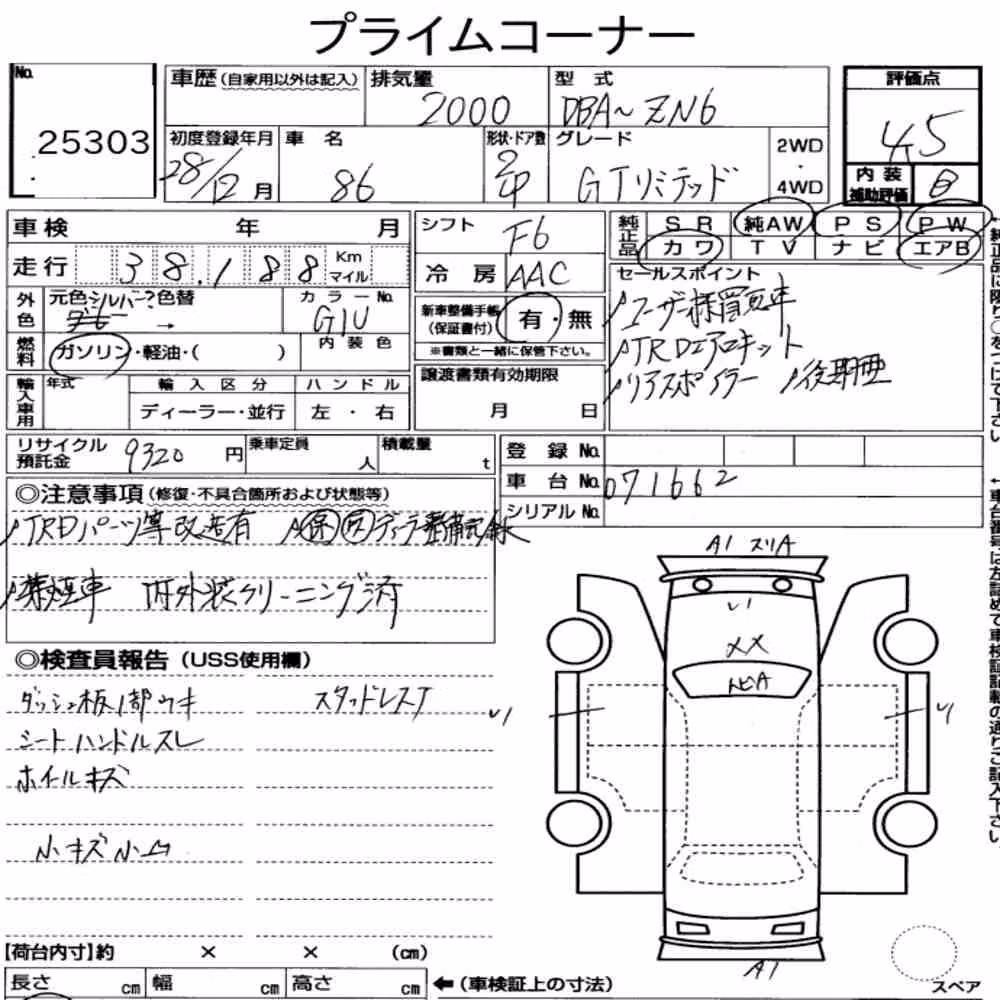 プライムコーナー
No.
25303
車歴 (自家用以外は記入)
排気量
2000
型式
DBA~ZN6
評価点
4.5
初度登録年月
28/12月
車名
86
形状・ドア数
2D
グレード
GTリミテッド
2WD
・
4WD
内装
補助評価
B
車検 年 月
シフト
F6
純正品
SR 純AW PS PW
カワ TV ナビ エアB
走行 38,188 Km
マイル
冷房 AAC
セールスポイント
ユーザー様買取車
TRDエアロキット
リアスポイラー 後期型
外色
元色 シルバー? 色替
→
カラーNo.
G1U
新車整備手帳
(保証書付)
有・無
※書類と一緒に保管下さい。
燃料
ガソリン・軽油・( )
内装色
輸入車用
年式
輸入区分
ディーラー・並行
ハンドル
左・右
譲渡書類有効期限
月 日
リサイクル
預託金
9320円
乗車定員
人
積載量
t
登録No.
車台No. 071662
シリアルNo.
◎注意事項 (修復・不具合箇所および状態等)
TRDパーツ等改造有 保 取 ディーラー整備記録
禁煙車 内外装クリーニング済
◎検査員報告 (USS使用欄)
ダッシュ板1部ウキ スタッドレスT
シートハンドルスレ
ホイールキズ
小キズ小凹
A1 スリA
U1
XX
トビA
U1
U1
A1
【荷台内寸】約 × × (cm)
長さ cm 幅 cm 高さ cm
←(車検証上の寸法)
スペア
←純正品に限り○をつけて下さい
←車台番号は左詰めで車検証記載の通りご記入下さい。